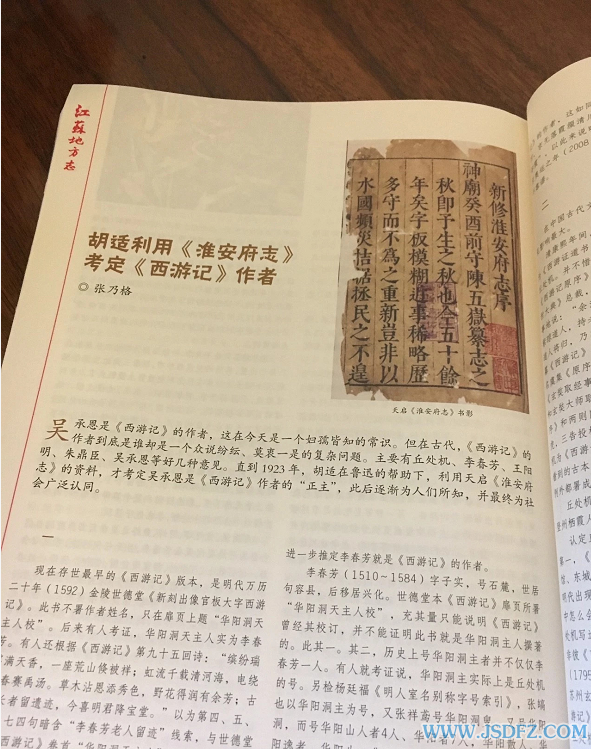 江蘇地方志
胡适利用《淮安府志》
考定《西游记》作者
◎ 张乃格
新修淮安府志序
神廟癸酉前守陳五嶽纂志之
秋卽予生之秋也今五十餘
年矣字板模糊近事稀略歷
多守而不為之重新豈非以
水國頻災拮据拯民之不遑
天启《淮安府志》书影
吴承恩是《西游记》的作者，这在今天是一个妇孺皆知的常识。但在古代，《西游记》的
作者到底是谁却是一个众说纷纭、莫衷一是的复杂问题。主要有丘处机、李春芳、王阳
明、朱鼎臣、吴承恩等好几种意见。直到1923年，胡适在鲁迅的帮助下，利用天启《淮安府
志》的资料，才考定吴承恩是《西游记》作者的“正主”，此后逐渐为人们所知，并最终为社
会广泛认同。
一
现在存世最早的《西游记》版本，是明代万历
二十年（1592）金陵世德堂《新刻出像官板大字西游
记》。此书不署作者姓名，只在扉页上题“华阳洞天
主人校”。后来有人考证，华阳洞天主人实为李春
芳。有人还根据《西游记》第九十五回诗：“缤纷瑞
满天香，一座荒山倏被祥；虹流千载清河海，电绕
春赛禹汤。草木沾恩添秀色，野花得润有余芳；古
长者留遗迹，今喜明君降宝堂。”以为第四、五、
七四句暗含“李春芳老人留迹”线索，与世德堂
进一步推定李春芳就是《西游记》的作者。
李春芳（1510～1584）字子实，号石麓，世居
句容县，后移居兴化。世德堂本《西游记》扉页所署
“华阳洞天主人校”，充其量只能说明《西游记》
曾经其校订，并不能证明此书就是华阳洞主人撰著
的。此其一。其二，历史上号华阳洞主者并不仅仅李
春芳一人。有人就考证说，华阳洞主实际上是丘处机
的号。另检杨廷福《明人室名别称字号索引》，张瑀
也以华阳洞主为号，又张祥鸢号华阳洞
洞，而号华阳山人者4人、华阳
WWW.JSDFZ.COM